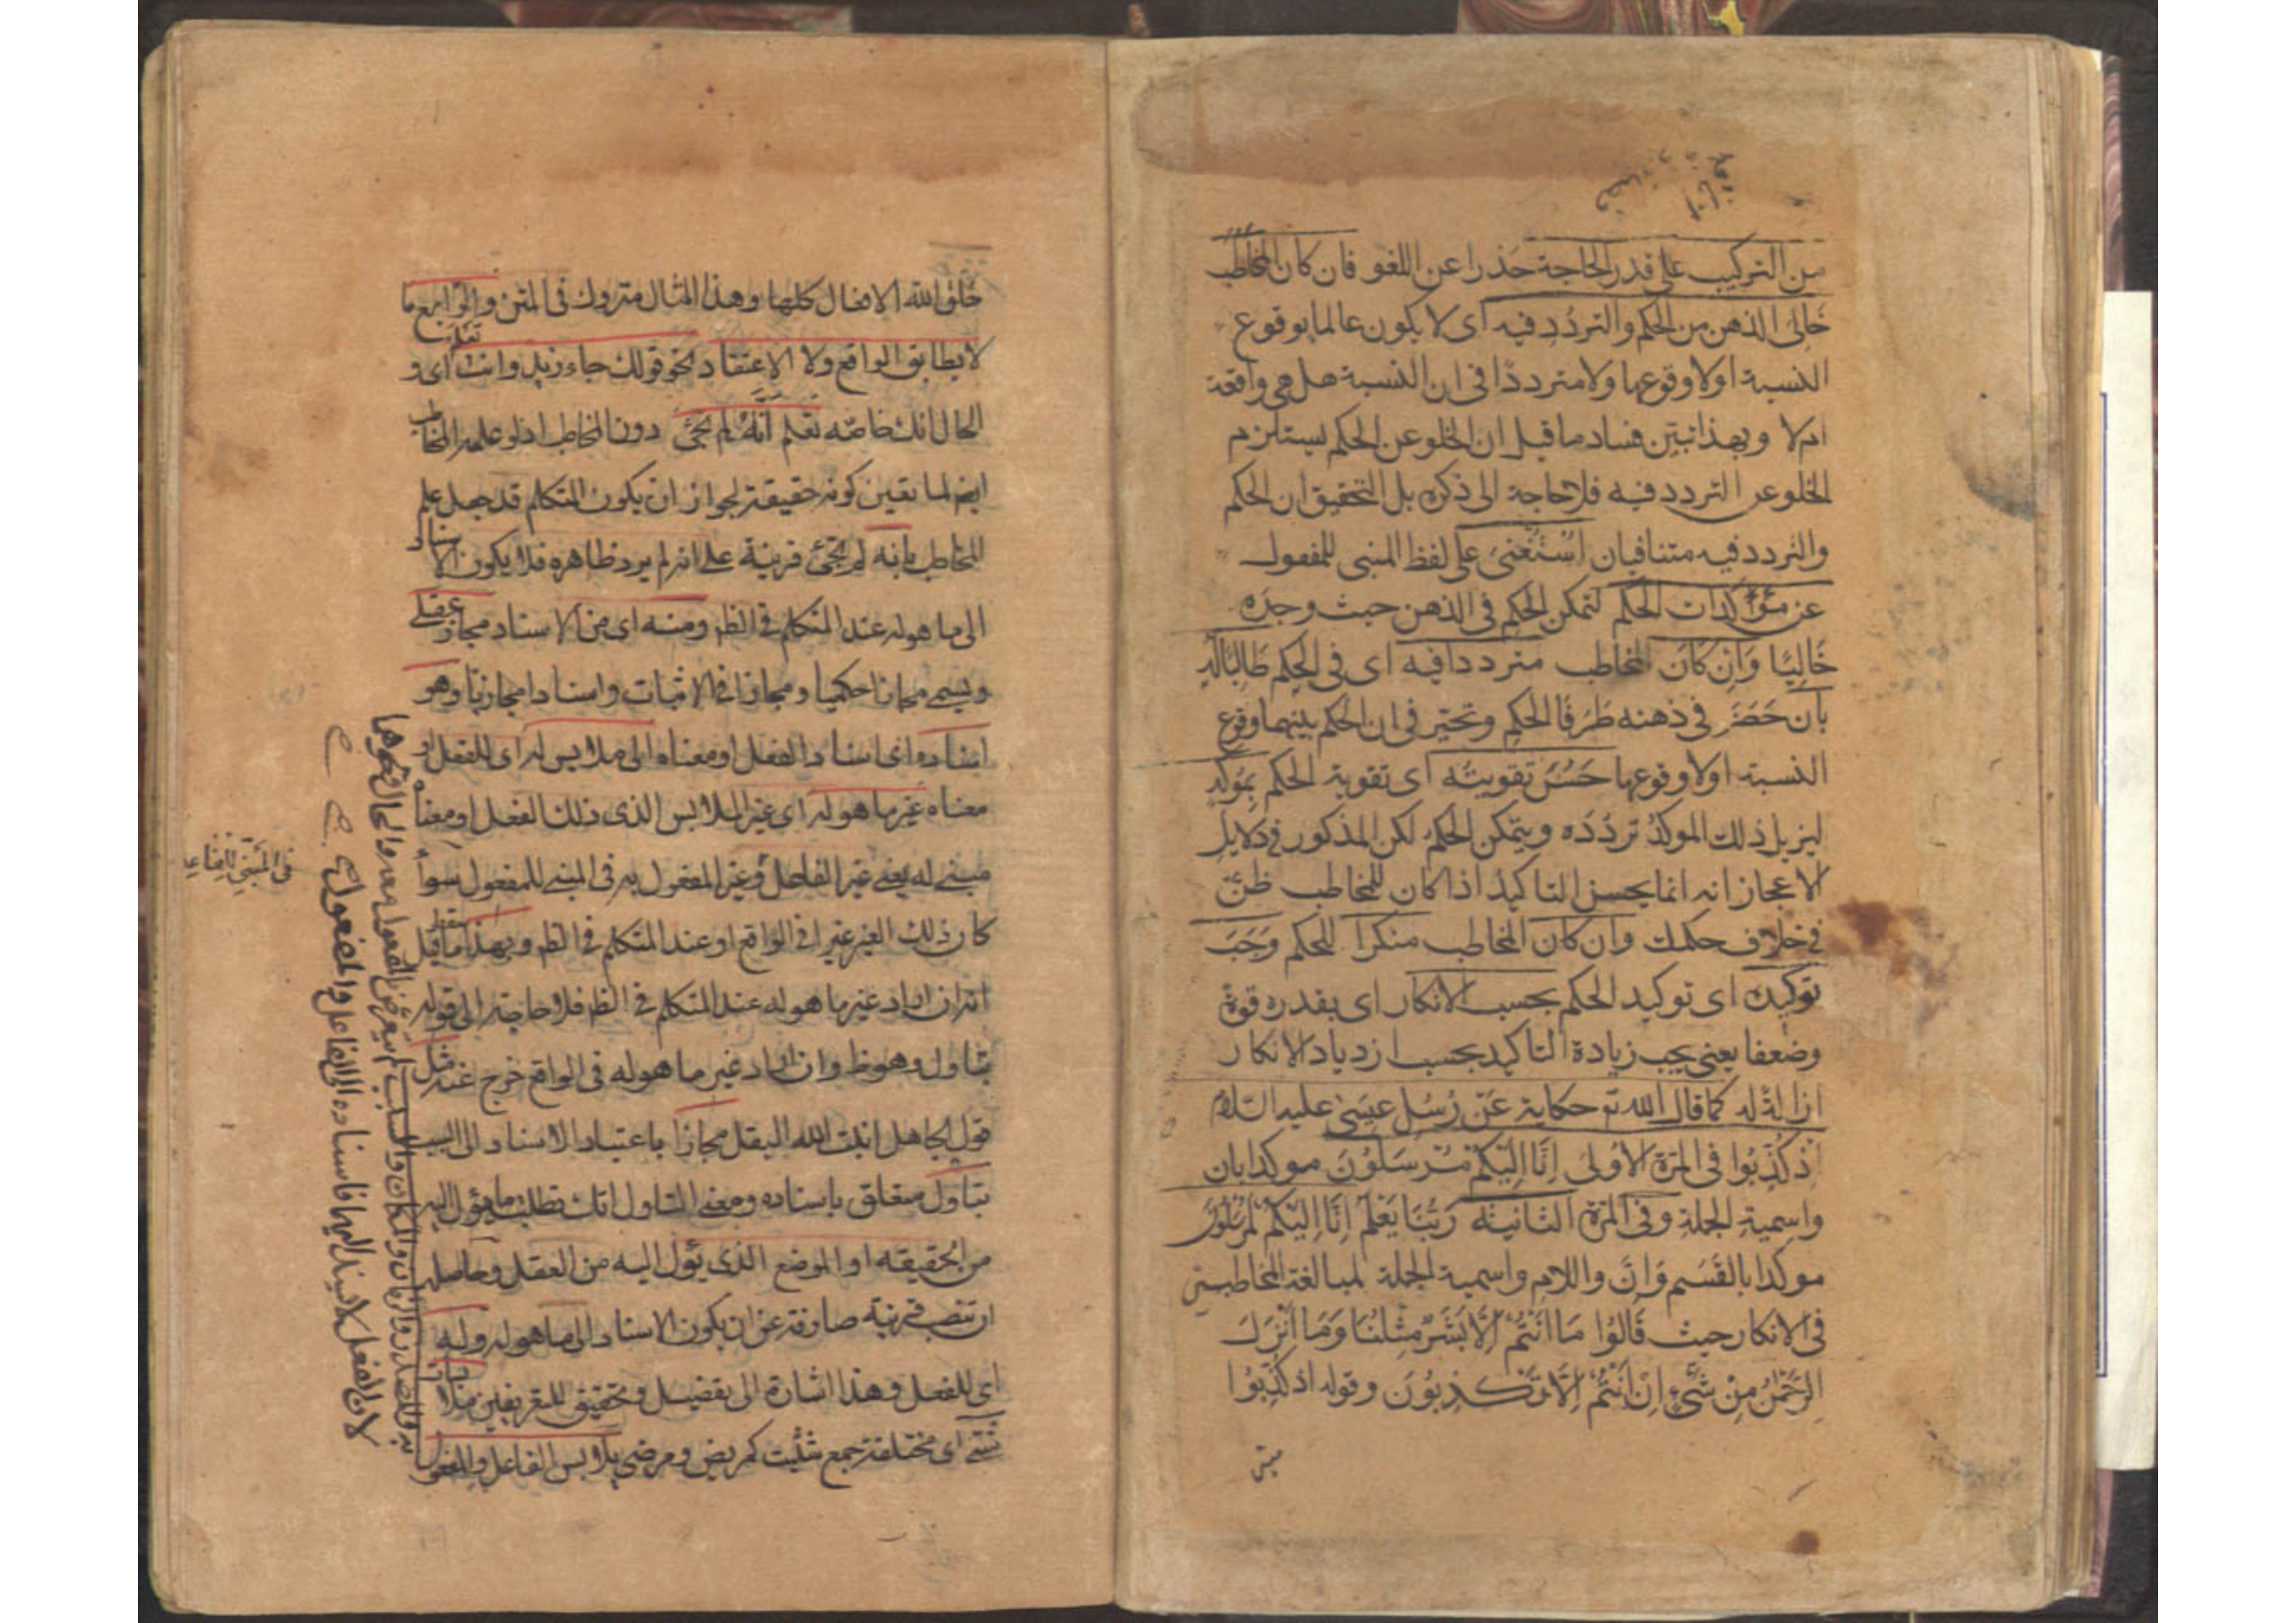 من التركيب على قدر الحاجة حذرا عن اللغو فان كان المخاطب
خَالىَ الذهن من الحكم والتردُدِ فيه اى لا يكون عالما بوقوع
النسبة اولا وقوعها ولا مترددًا فى ان النسبة هل هى واقعة
ام لا وبهذا تبين فساد ما قيل ان الخلو عن الحكم يستلزم
الخلو عن التردد فيه فلا حاجة الى ذكره بل التحقيق ان الحكم
والتردد فيه متنافيان اُسْتُغنىَ على لفظ المبنى للمفعول
عن مُؤكدات الحكم لتمكن الحكم فى الذهن حيث وجده
خَاليًا وَاِن كَانَ المخاطب مترددا فيه اى فى الحكم طَالبًا لَه
بأن حَضَرَ فى ذهنه طَرَفَا الحكم وتحير فى ان الحكم بينهما وقوع
النسبة اولا وقوعها حَسُنَ تقويتُه اى تقوية الحكم بمؤكدٍ
ليزيل ذلك الموكدُ تردُدَه ويتمكن الحكم لكن المذكور فى دلايل
الاعجاز انه انما يحسن التاكيد اذا كان للمخاطب ظنّ
فى خلاف حكمك وان كان المخاطب منكرا للحكم وَجَبَ
توكيده اى توكيد الحكم بحسب الانكار اى بقدره قوة
وضعفا يعنى يجب زيادة التاكيد بحسب ازدياد الانكار
ازالة له كما قال الله تم حكاية عَن رُسُل عيسَى عليه السلام
اذ كُذِّبُوا فى المرة الاُولى اِنَّا اِلَيكُم مُرسَلُونَ موكدا بان
واسمية الجملة وفى المرة الثانية رَبُّنَا يَعْلَمُ اِنَّا اِلَيكُم لمُرسَلُونَ
موكدا بالقَسَم وَانَّ واللام واسمية الجملة لمبالغة المخاطبين
فى الانكار حيث قَالوُا مَا اَنْتُمْ اِلَّا بَشَرٌ مِثْلُنَا وَمَا اَنْزَلَ
الرَحْمٰنُ مِنْ شَئٍ اِنْ اَنْتُمْ اِلَّا تَكذِبُونَ وقوله اذ كُذِّبُوا
خلق الله الافعال كلها وهذا المثال متروك فى المتن والرابع ما
لا يطابق الواقع ولا الاعتقاد نحو قولك جاء زيد وانت اى و
تعلم
الحال انك خاصّه تعلم اَنَّهُ لم يجئ دون المخاطب اذ لو علمه المخاطب
ايضا لما تعين كونه حقيقة لجواز ان يكون المتكلم قد جعل علم
المخاطب بانه لم يجئ قرينة على انه لم يرد ظاهره فلا يكون الاسناد
الى ما هو له عند المتكلم فى الظ ومنه اى من الاسناد مجاز عقلى
ويسمى مجازا حكميا ومجازا فى الاثبات واسنادا مجازيا وهو
اسناده اى اسناد الفعل او معناه الى ملابس له اى للفعل او
معناه غير ما هو له اى غير الملابس الذى ذلك الفعل او معناه
مبنى له يعنى غير الفاعل وغير المفعول به فى المبنى للمفعول سواء
كان ذلك الغير غيرا فى الواقع او عند المتكلم فى الظ وبهذا سقط ما قيل
انه ان اراد غير ما هو له عند المتكلم فى الظ فلا حاجة الى قوله
بتاول وهو ظ وان اراد غير ما هو له فى الواقع خرج عنه مثل
قول الجاهل انبت الله البقل مجازا باعتبار الاسناد الى السبب
بتاول متعلق باسناده ومعنى التاول انك تطلب ما يؤل اليه
من الحقيقه او الموضع الذى يؤل اليه من العقل وحاصله
ان تنصب قرينة صارفة عن ان يكون الاسناد الى ما هو له وله
اى للفعل وهذا اشارة الى تفضيل وتحقيق للتعريفين ملابسات
شتى اى مختلفة جمع شتيت كمريض ومرضى يلابس الفاعل والمفعول
به والمصدر والزمان والمكان والسبب لم يتعرض للمفعول معه والحال ونحوها
لان الفعل لا يسند اليها فاسناده الى الفاعل والمفعول
فى المبنى للفاعل